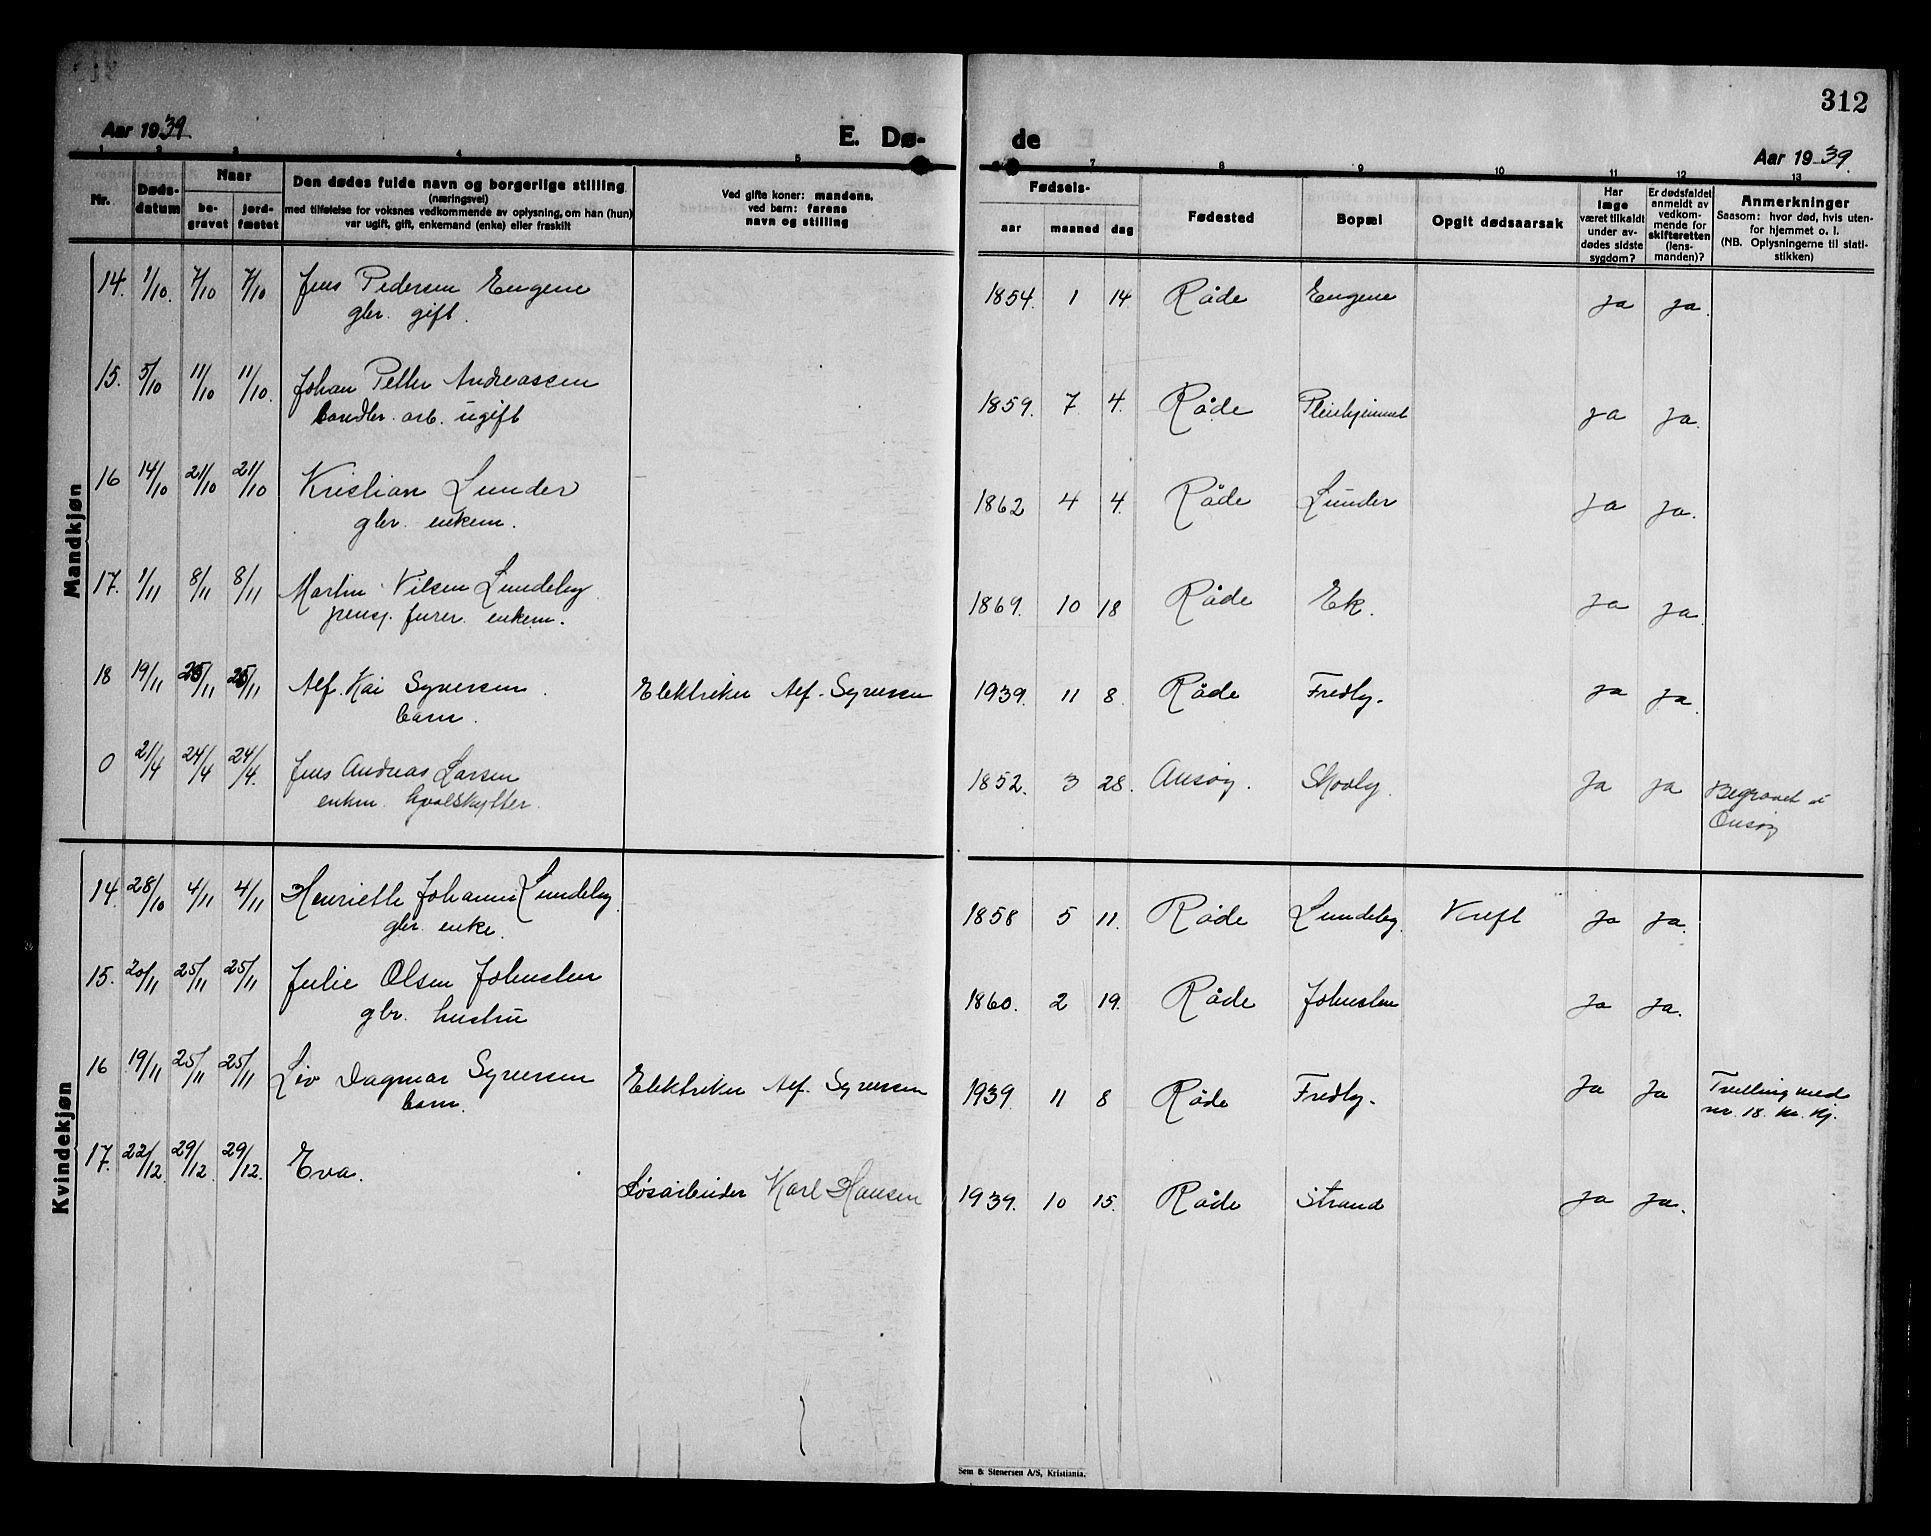 312
Aar 1939
E. Dø-
de
Aar 1939.
1 2 3 4 5 7 8 9 10 11 12 13
Nr.
Døds-
datum
Naar
be-
gravet
jord-
fæstet
Den dødes fulde navn og borgerlige stilling
(næringsvei)
med tilføielse for voksnes vedkommende av oplysning, om han (hun)
var ugift, gift, enkemand (enke) eller fraskilt
Ved gifte koner: mandens,
ved barn: farens
navn og stilling
Fødsels-
aar
maaned
dag
Fødested
Bopæl
Opgit dødsaarsak
Har
læge
været tilkaldt
under av-
dødes sidste
sygdom?
Er dødsfaldet
anmeldt av
vedkom-
mende for
skifteretten
(lens-
manden)?
Anmerkninger
Saasom: hvor død, hvis uten-
for hjemmet o. l.
(NB. Oplysningerne til stati-
stikken)
Mandkjøn
14. 1/10. 7/10 7/10 Jens Pedersen Engene 1854. 1 14 Råde Engene ja ja.
gbr. gift.
15. 5/10 11/10 11/10. Johan Petter Andreassen 1859. 7. 4. Råde Pleiehjemmet ja ja.
landbr. arb. ugift
16 14/10 21/10 21/10 Kristian Lunder 1862 4 4. Råde Lunder ja ja.
gbr. enkem.
17. 1/11 8/11 8/11 Martin Nilsen Lundeby 1869. 10 18 Råde Ek. ja ja.
pensj. furer. enkem.
18 19/11 25/11 25/11 Alf. Kai Syversen. Elektriker Alf. Syversen 1939. 11 8. Råde Fredly. ja ja.
barn.
0 21/4 24/4 24/4. Jens Andreas Larsen 1852. 3 28. Onsøy. Skovly. ja ja Begravet i
enkm. hvalskytter. Onsøy
Kvindekjøn
14. 28/10 4/11 4/11 Henriette Johanne Lundeby. 1858 5 11. Råde Lundeby. Kreft ja ja.
gbr. enke.
15. 20/11 25/11 25/11 Julie Olsen Johnsten 1860. 2 19. Råde Johnsten ja ja.
gbr. hustru
16 19/11 25/11 25/11 Liv Dagmar Syversen Elektriker Alf. Syversen 1939. 11 8 Råde Fredly. ja ja Tvelling med
barn. nr. 18. m. kj.
17. 22/12. 29/12. 29/12. Eva. Løsarbeider Karl Hansen 1939. 10 15. Råde Strand ja ja.
Sem & Stenersen A/S, Kristiania.